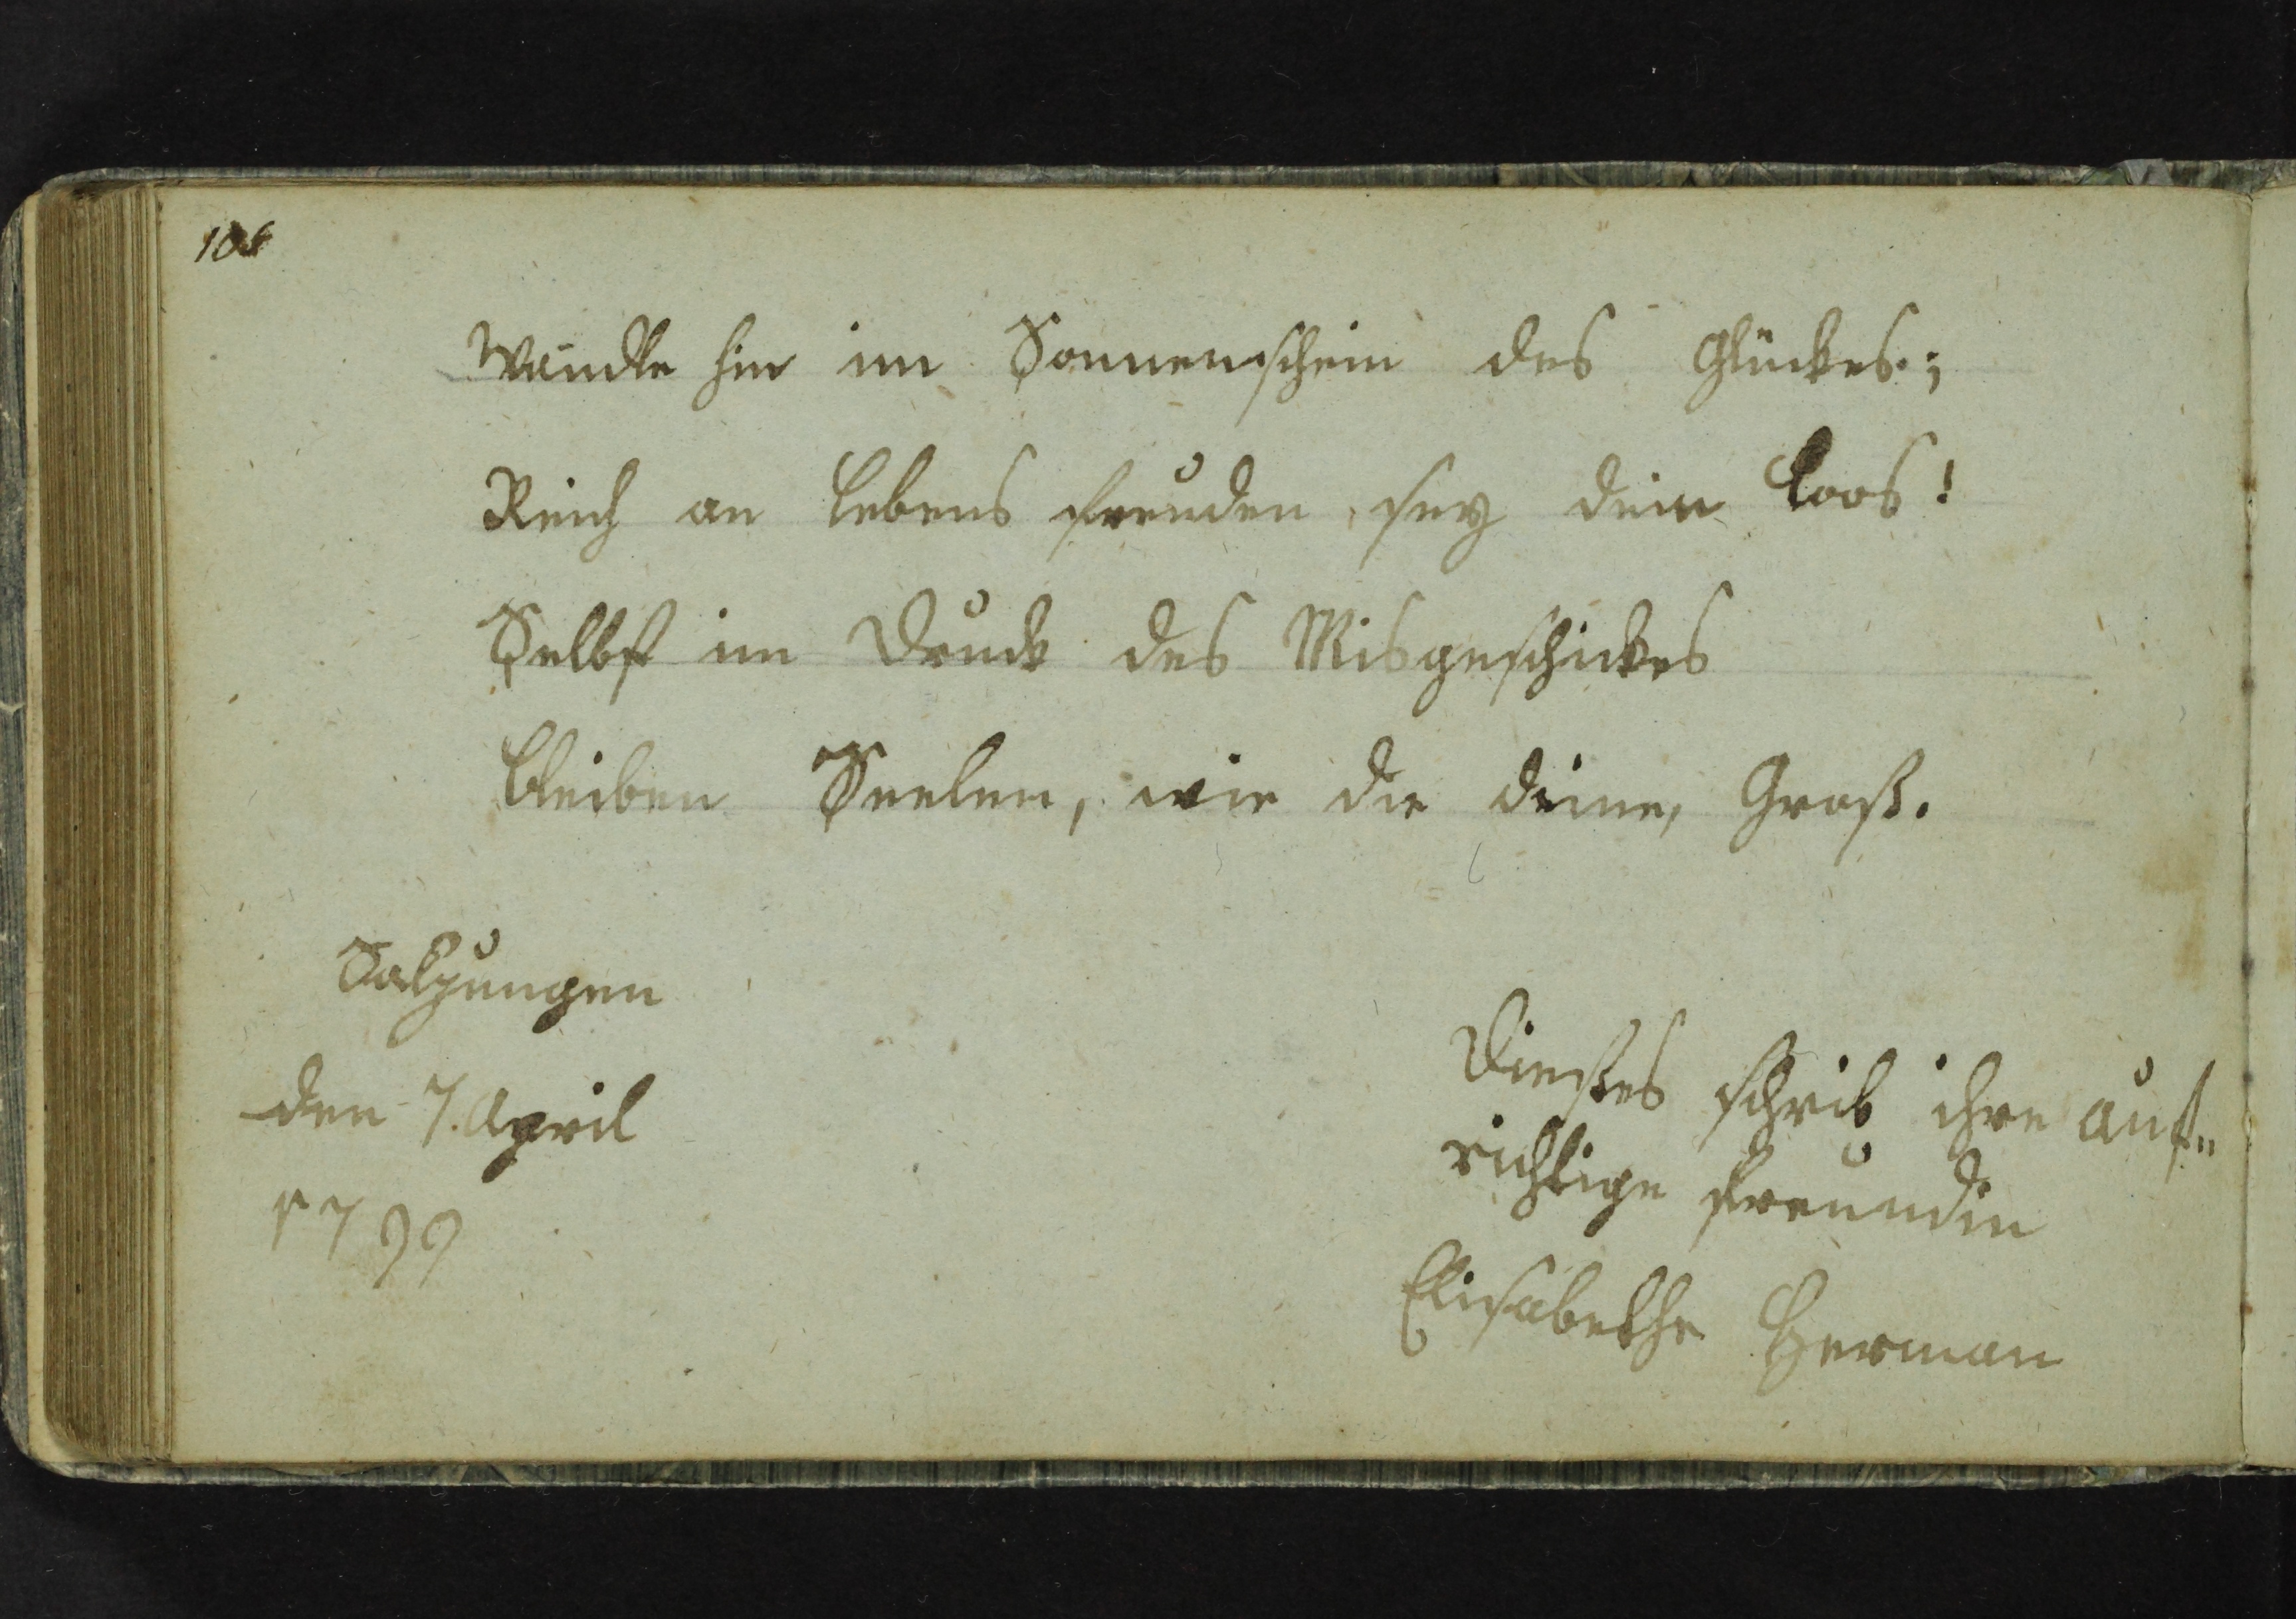 106
Wandle hin im Sonnenschein des Glückes;
Reich an Lebens freuden, sey dein Loos!
Selbst im Druck des Misgeschickes
bleiben Seelen, wie die deine, Groß.
Salzungen
den 7. April
1799
Dießes schrib ihre auf„
richtige freundin
Elisabethe Herman